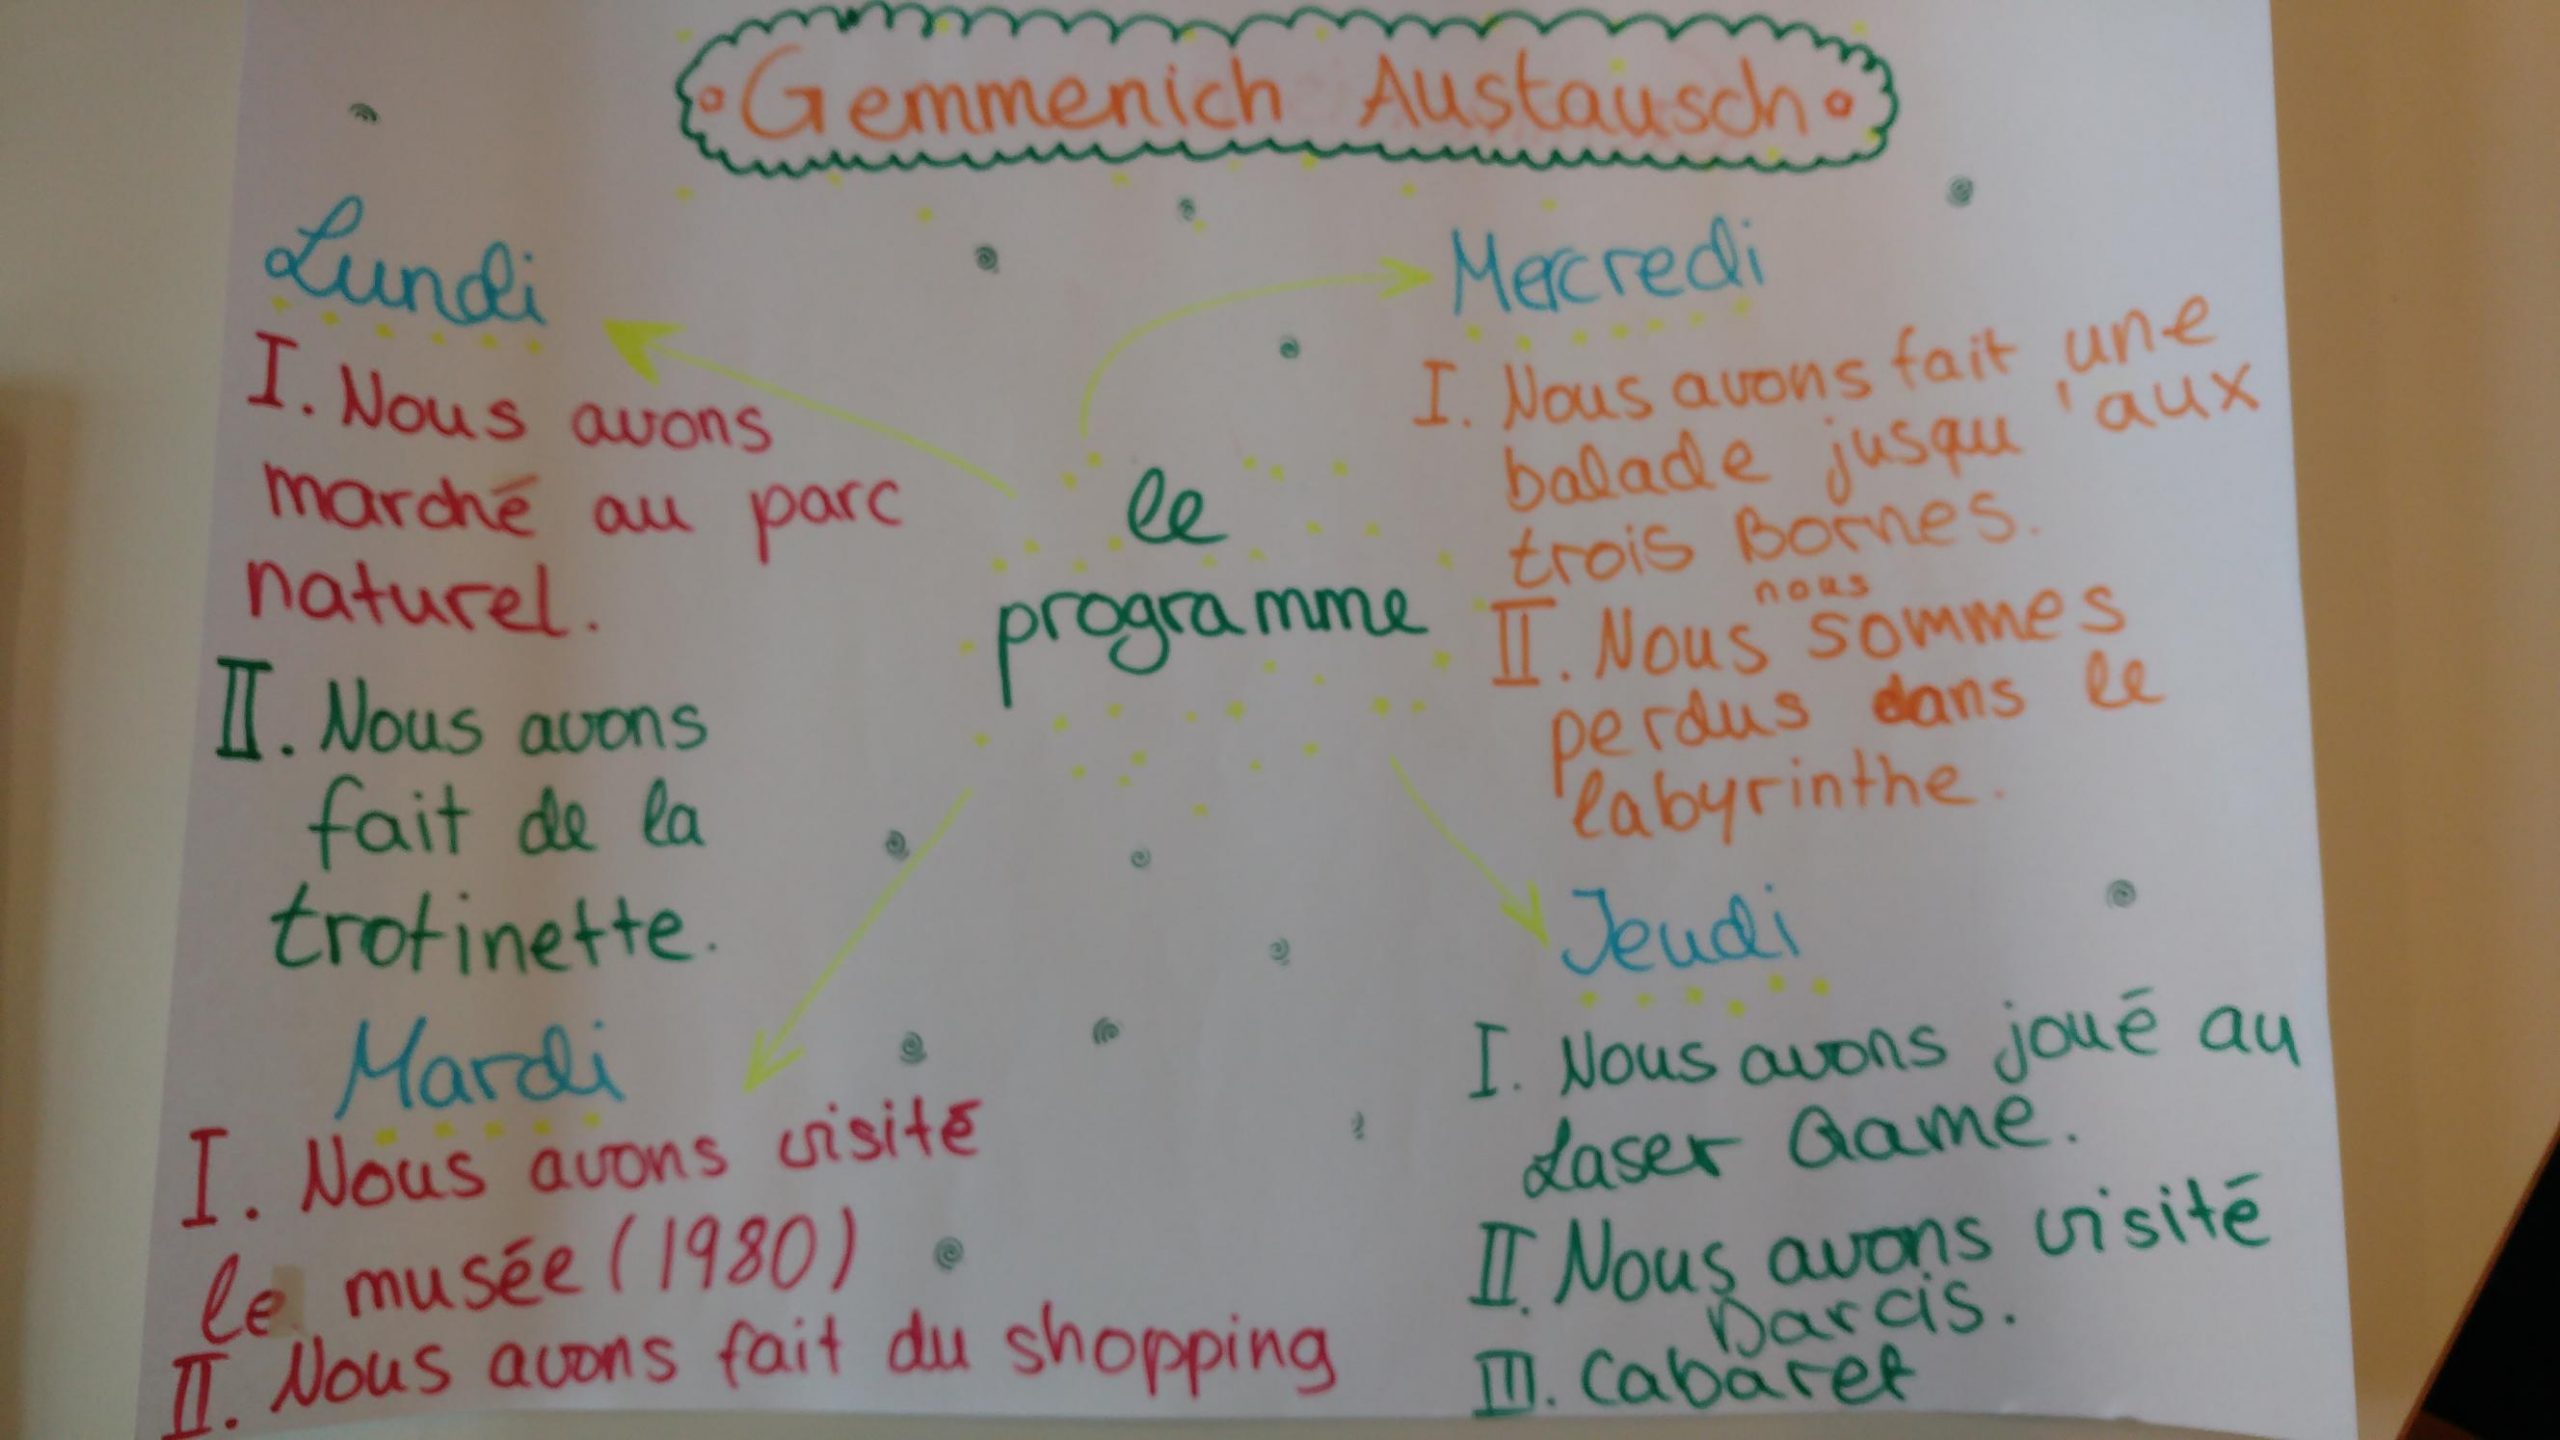 Gemmenich Austausch
Lundi
I. Nous avons
marché au parc
naturel.
II. Nous avons
fait de la
trotinette.
Mardi
I. Nous avons visité
le musée (1980)
II. Nous avons fait du shopping
le
programme
Mercredi
I. Nous avons fait une
balade jusqu'aux
trois Bornes.
nous
II. Nous sommes
perdus dans le
labyrinthe.
Jeudi
I. Nous avons joué au
Laser Game.
II. Nous avons visité
Darcis.
III. Cabaret